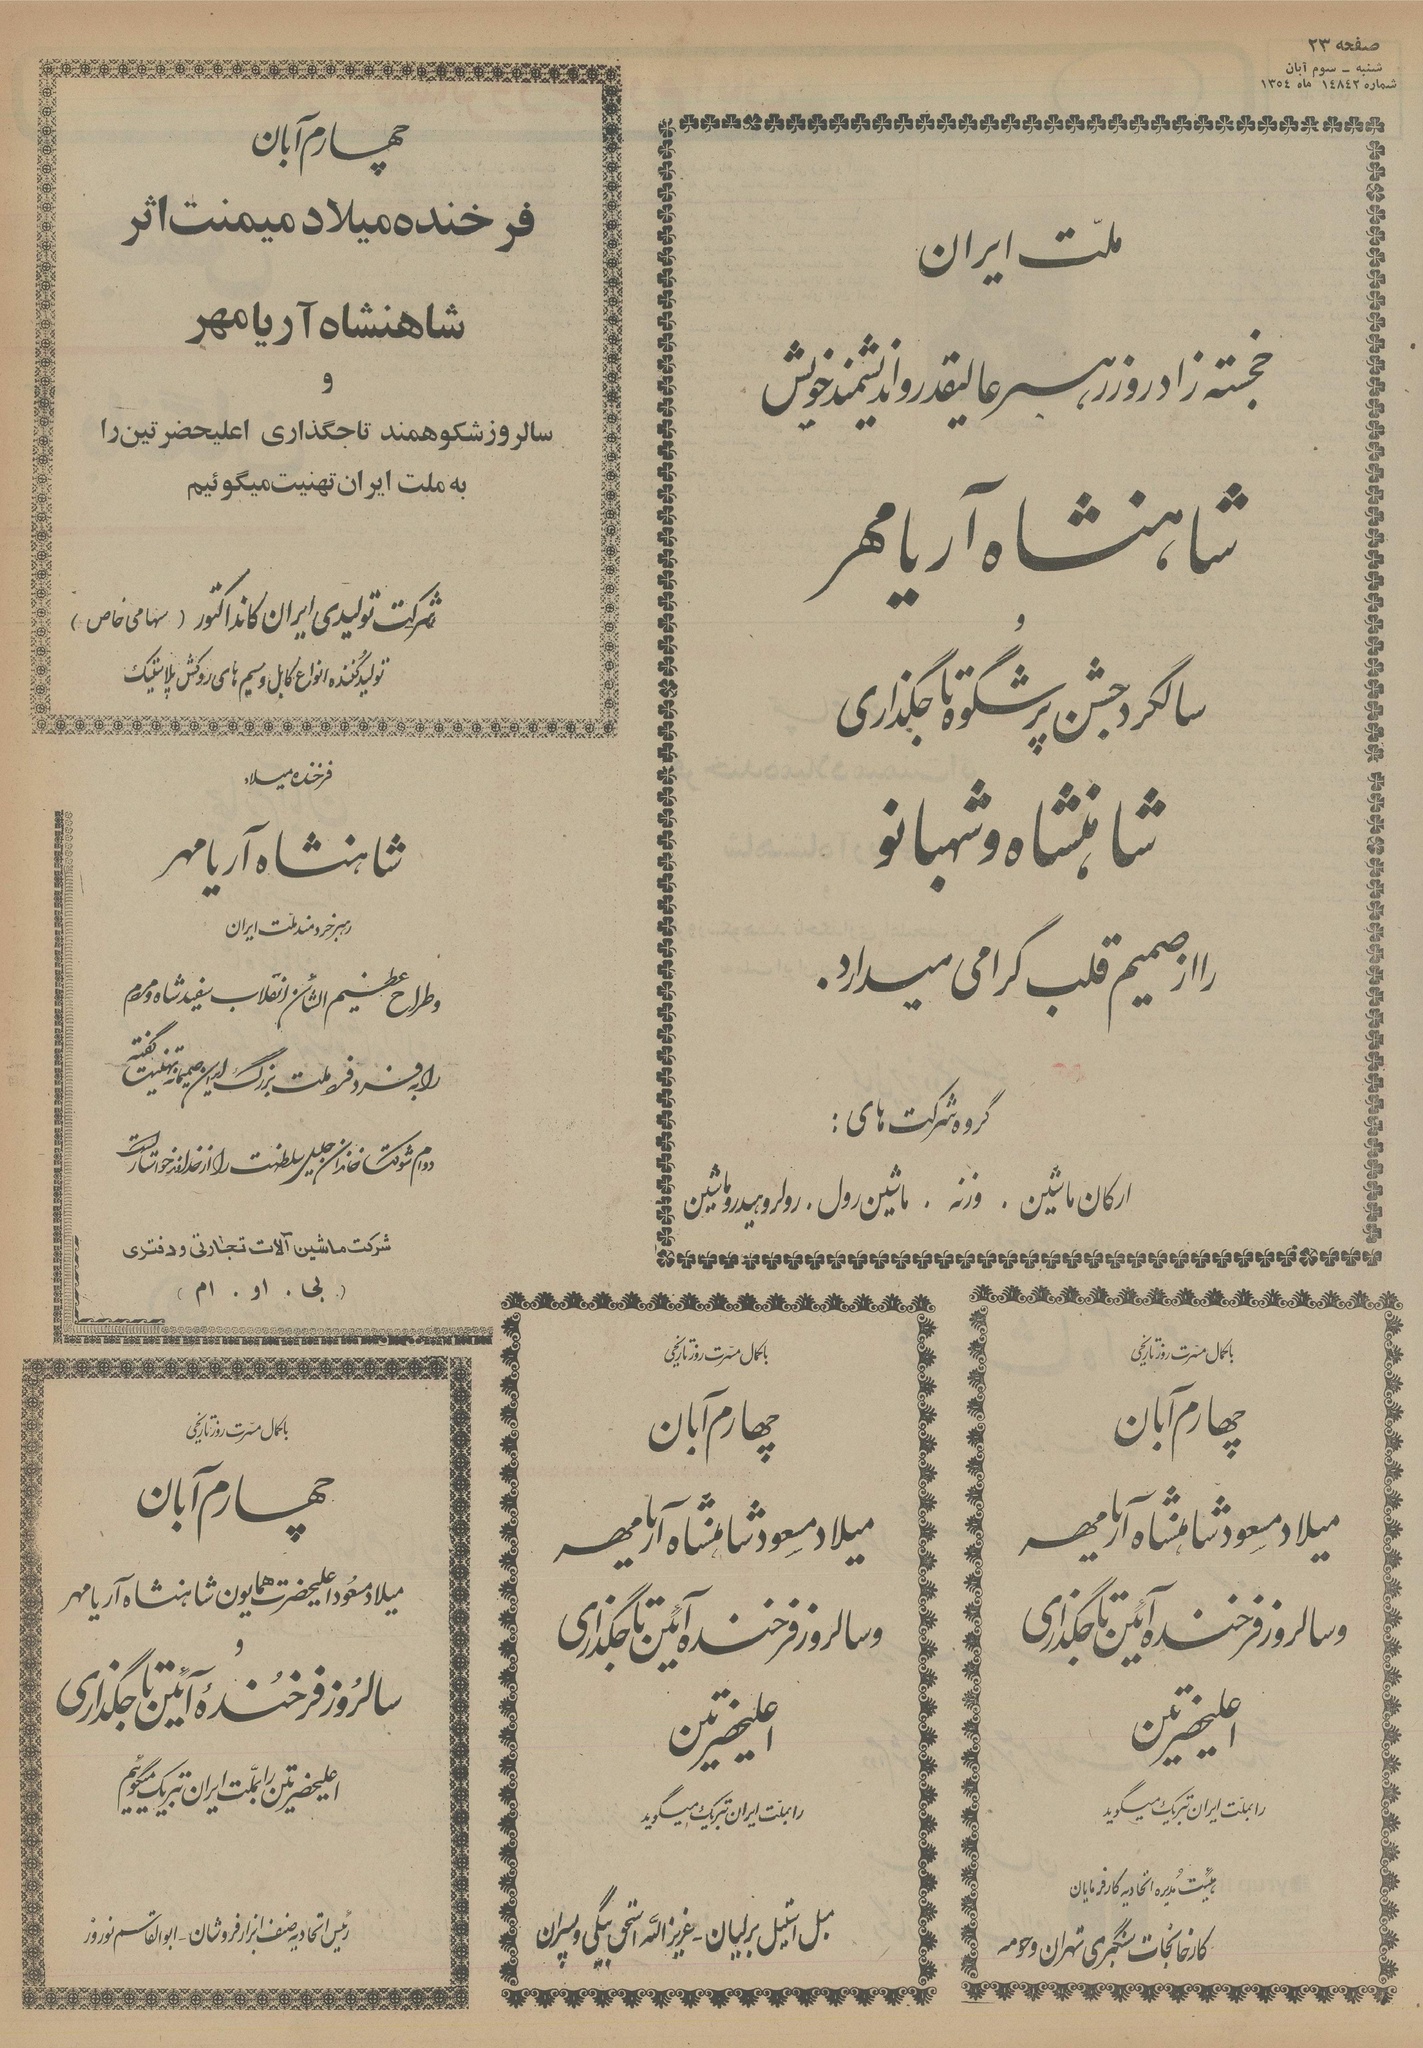 صفحه ۲۳
شنبه ـ سوم آبان
شماره ۱۴۸۴۲ ماه ۱۳۵۴
ملّت ایران
خجسته زادروز رهبر عالیقدر و اندیشمند خویش
شاهنشاه آریامهر
و
سالگرد جشن پرشگوه تاجگذاری
شاهنشاه و شهبانو
را از صمیم قلب گرامی میدارد.
گروه شرکت های :
ارکان ماشین . وزنه . ماشین رول . رولر و هیدروماشین
چهارم آبان
فرخنده میلاد میمنت اثر
شاهنشاه آریامهر
و
سالروز شکوهمند تاجگذاری اعلیحضرتین را
به ملت ایران تهنیت میگوئیم
شرکت تولیدی ایران کانداکتور ( سهامی خاص )
تولید کننده انواع کابل و سیم های روکش پلاستیک
فرخنده میلاد
شاهنشاه آریامهر
رهبر خردمند ملّت ایران
و طراح عظیم الشأن انقلاب سفید شاه و مردم
را به فرد فرد ملت بزرگ ایران صمیمانه تهنیت گفته
دوام شوکت خاندان جلیل سلطنت را از خداوند خواستار است
شرکت ماشین آلات تجارتی و دفتری
( بی . او . ام )
با کمال مسرت روز تاریخی
چهارم آبان
میلاد مسعود شاهنشاه آریامهر
و سالروز فرخنده آئین تاجگذاری
اعلیحضرتین
را بملّت ایران تبریک میگوید
هیئت مدیره اتحادیه کارفرمایان
کارخانجات سنگبری تهران و حومه
با کمال مسرت روز تاریخی
چهارم آبان
میلاد مسعود شاهنشاه آریامهر
و سالروز فرخنده آئین تاجگذاری
اعلیحضرتین
را بملّت ایران تبریک میگوید
مبل استیل برلیان - عزیزالله اسحق بیگی و پسران
با کمال مسرت روز تاریخی
چهارم آبان
میلاد مسعود اعلیحضرت همایون شاهنشاه آریامهر
و
سالروز فرخندهٔ آئین تاجگذاری
اعلیحضرتین را بملّت ایران تبریک میگوئیم
رئیس اتحادیه صنف ابزار فروشان - ابوالقاسم نوروز